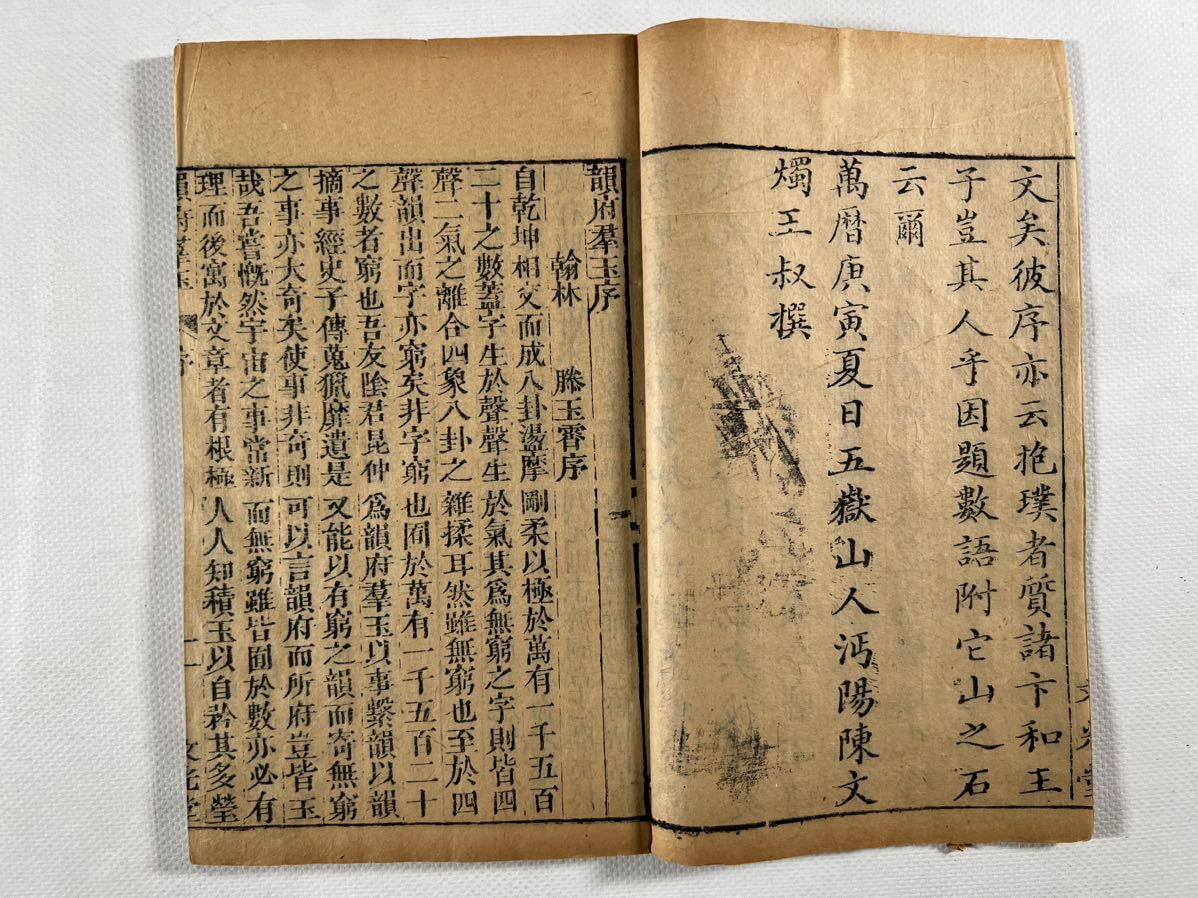 文矣彼序亦云抱璞者質諸卞和王
子豈其人乎因題數語附它山之石
云爾
萬曆庚寅夏日五嶽山人沔陽陳文
燭王叔撰
韻府羣玉序
翰林 滕玉霄序
自乾坤相交而成八卦盪摩剛柔以極於萬有一千五百
二十之數蓋字生於聲聲生於氣其爲無窮之字則皆四
聲二氣之離合四象八卦之雜揉耳然雖無窮也至於四
聲韻出而字亦窮矣非字窮也囿於萬有一千五百二十
之數者窮也吾友陰君昆仲爲韻府羣玉以事繫韻以韻
摘事經史子傳蒐獵靡遺是又能以有窮之韻而寄無窮
之事亦大奇矣使事非奇則可以言韻府而所府豈皆玉
哉吾嘗慨然宇宙之事常新而無窮雖皆囿於數亦必有
理而後寓於文章者有根極人人知積玉以自矜其多瑩
韻府羣玉 序